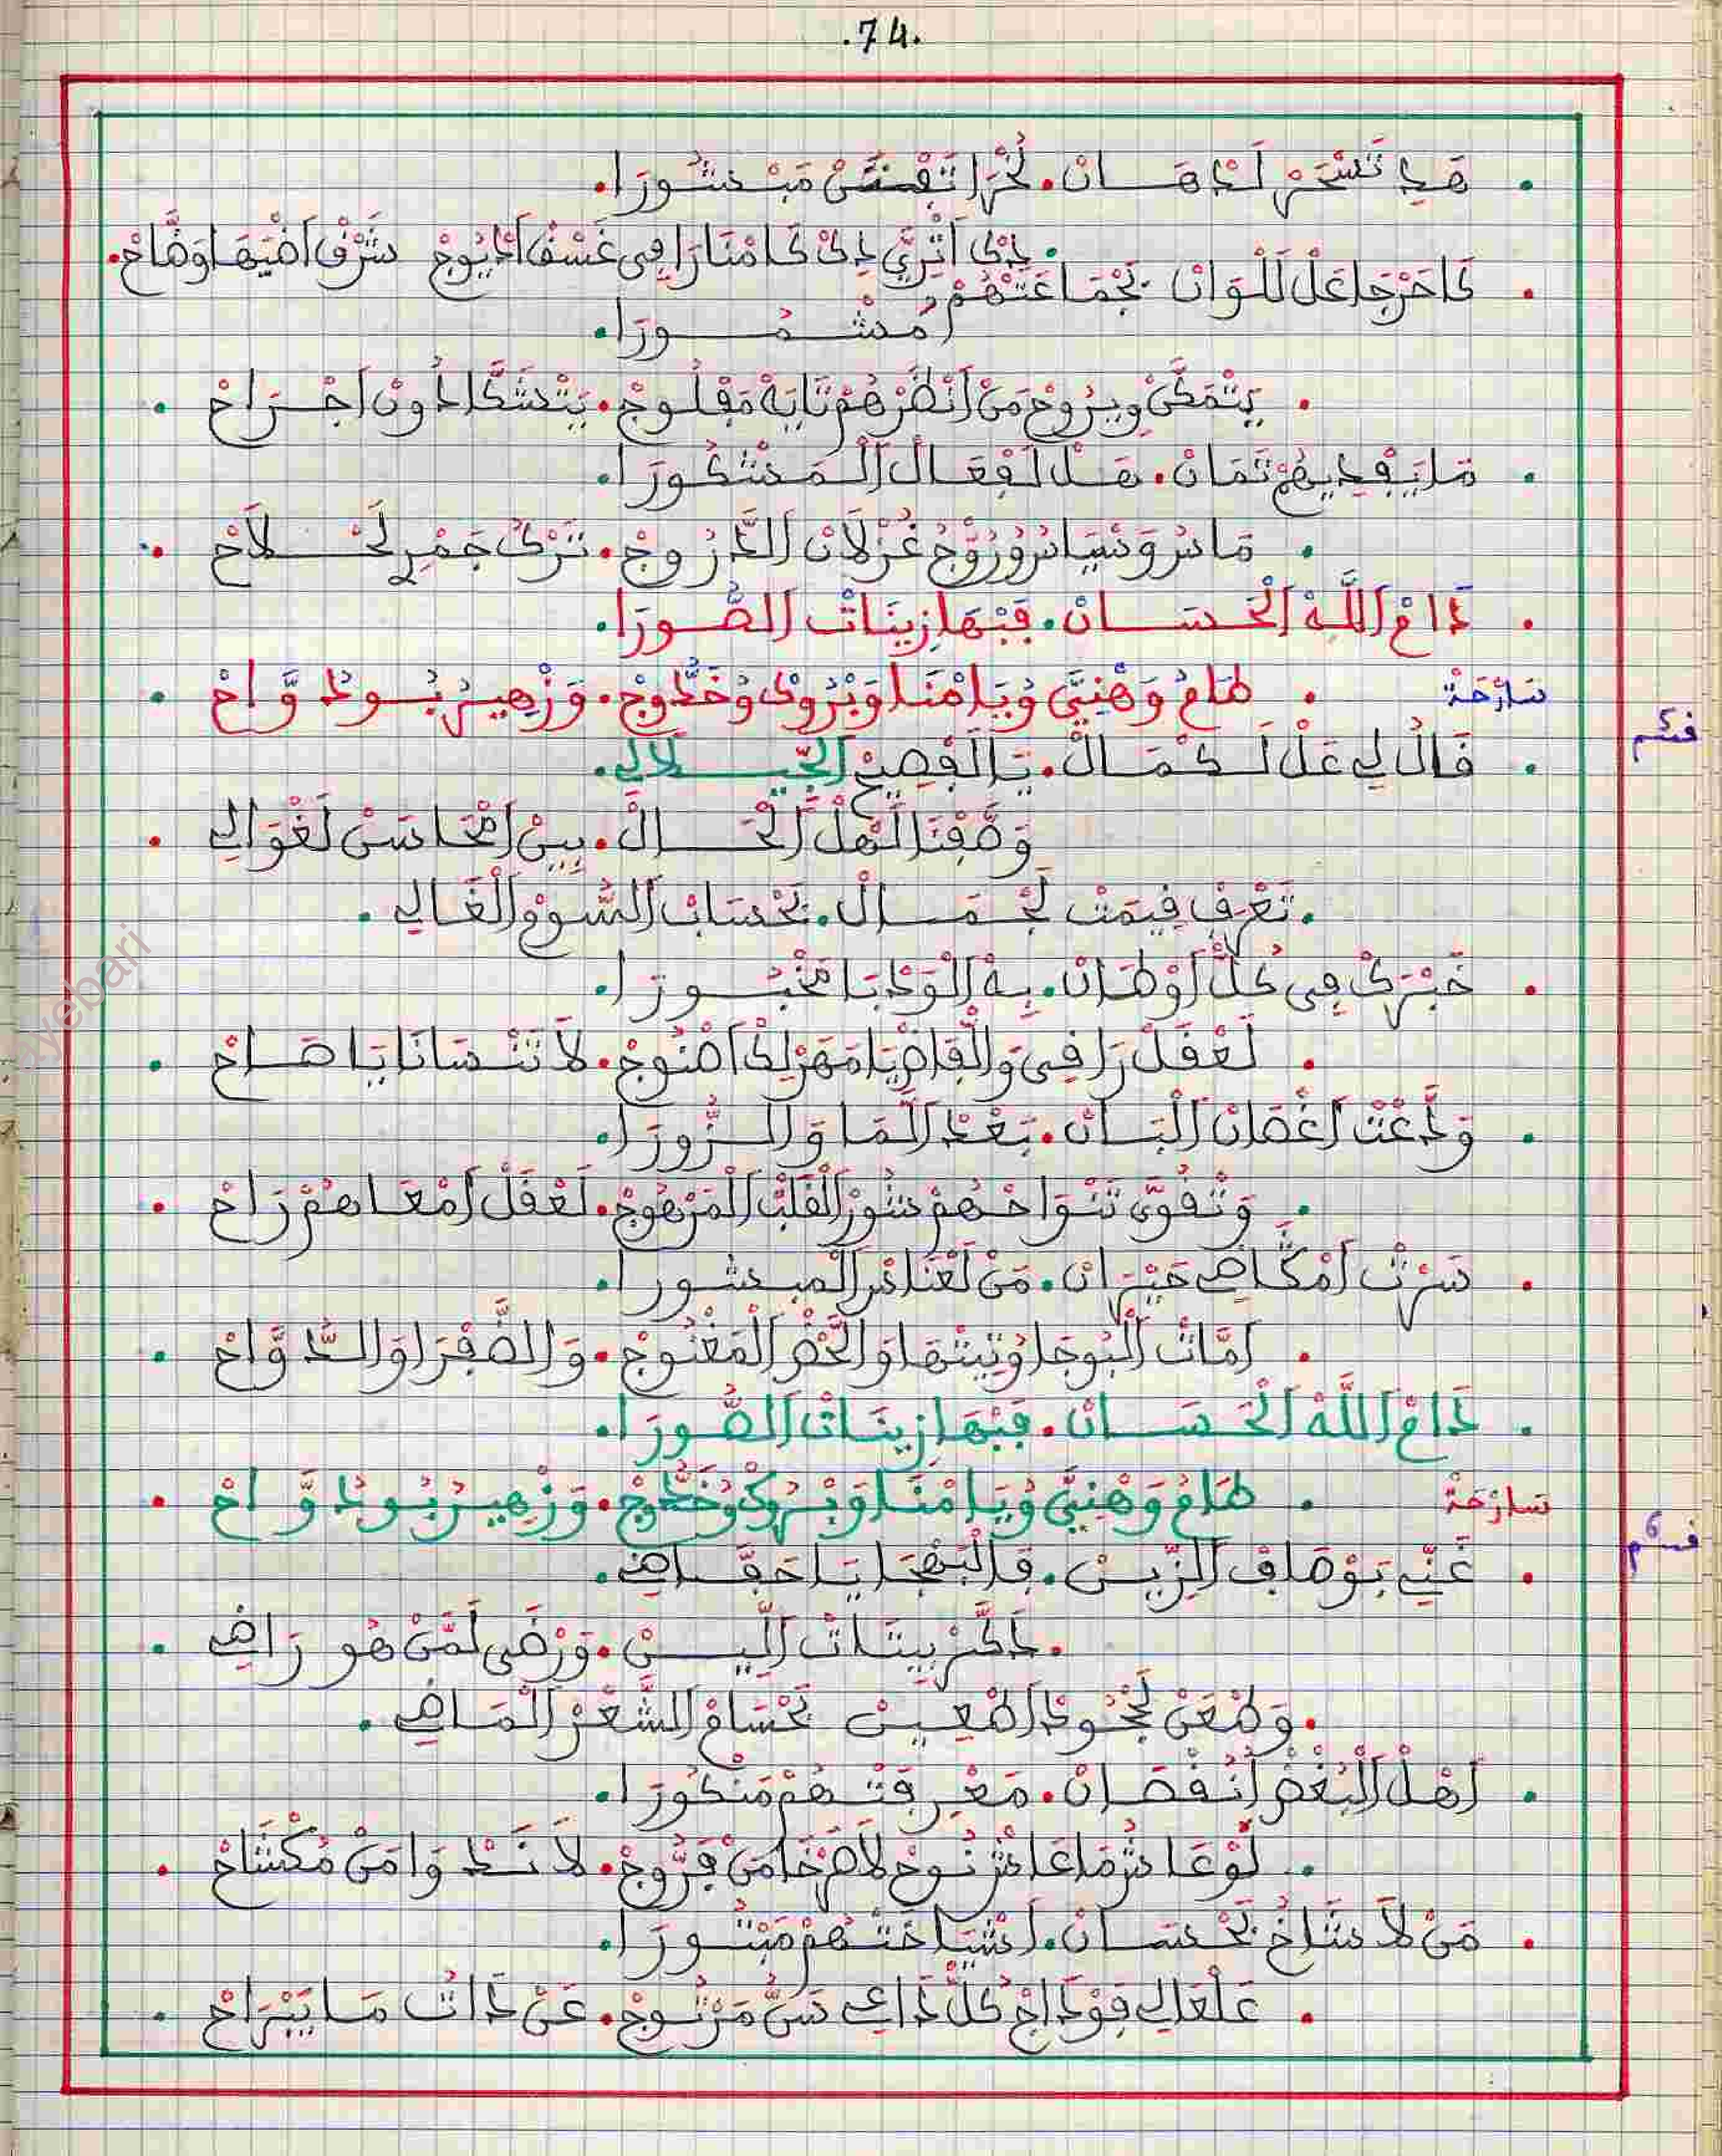 .74.
هَدِ تَسْحَرْ لَدْهَانْ. لُخْرَا تَفْتَنْ مَبْشُورَا.
. دِيكْ اتْرِي دِيكْ كَامْنَارَا فِي غَسْقْ ادْيُوجْ شَرْقْ اضْيَهَا وَضَّاحْ.
كَاخَرْجَا عَلْ لَلْوَانْ بَجْمَاعَتْهُمْ
امْشْهُورَا.
يَتْمَحَّنْ وِيرُوحْ مَنْ انْظَرْهُمْ تَايَهْ مَفْلُوجْ. يَتْشَكَّا دُونْ اجْرَاحْ .
مَا يَفْدِيهُمْ تَمَانْ. هَلْ لَفْعَالْ الْمَشْكُورَا.
مَا سَرْوَنْسِيَا سْرُورْ وْجُ غُزْلَانْ الدَّرُوجْ. تَرْكْ جَمْرِ لَخْلَاحْ .
دَامْ اللَّهْ الْحْسَانْ. فَبْهَا زِينَاتْ الصُّورَا.
سَارْحَةْ . طَامُ وَهْنِيَّ وُيَامْنَا وَبْرُوكْ وُخَدُّوجْ. وَزْهِيرُ بُودْوَّاحْ .
قسم 5
. قَالْ لِي عَلْ لَكْمَالْ. يَا الْفْصِيحْ الْجِّيلَالِي.
وَصَّفْنَا لَهْلْ الْحَالْ. بِينْ امْحَاسَنْ لَغْوَالِي .
. تَعْرَفْ قِيمَتْ لَجْمَالْ. بَحْسَابْ السُّوقْ الْغَالِي .
. خَبْرَكْ فِي كُلّْ اوْطَانْ. بِهْ الْوَدْبَا مَخْبُورَا.
. لَعْقَلْ رَافِي وَالْقَاضْيَا مَهَزْلَكْ اصْنُوجْ. لَا تَنْسَانَا يَا صَاحْ .
. وَدَّعْتْ اغْصَانْ الْبَانْ. بَعْدْ الْمَا وَالزُّورَا.
. وَنْقُوَّى تَنْوَاحْهُمْ شُورْ الْقَلْبْ الْمَرْهُوجْ. لَعْقَلْ امْعَاهُمْ رَاحْ .
. سَرْتْ امْكَّاضِي حَيْرَانْ. مَنْ لَعْنَادْرْ الْمبشُورا.
. امَّاتْ الْبُوجَا وُبِيتْهَا وَالْخْضَرْ الْمَغْنُوجْ. وَالصَّفْرَا وَالدَّوَّاحْ .
. دَامْ اللَّهْ الْحْسَانْ. فَبْهَا زِينَاتْ الصُّورَا.
سَارْحَةْ . طَامُ وَهْنِيَّ وُيَامْنَا وَبْرُوكْ وُخَدُّوجْ. وَزْهِيرُ بُودْوَّاحْ .
قسم 6
. غَنِّي بَوْصَافْ الزِّينْ. فَالْبَهْجَا يَا حَفَّاضِي.
. دَكَّرْ بِيتَاتْ اللِّينْ. وَرْضَى لَمَّنْ هُو رَاضِي .
. وَطْعَنْ لَجْحُودْ اطْعِينْ بَحْسَامْ الشَّعْرْ الْمَاضِي .
. اهْلْ الْبُغْضْ انُقْصَانْ. مَعْرِفَتْهُمْ مَنْكُورَا.
. لَوْ عَاشْ مَا عَاشْ نُوحْ لَاصْرْخَا مَنْ فَرُّوجْ. لَا نَدْوَا مَنْ مُكْشَاحْ .
. مَنْ لَا شَاخْ بَحْسَانْ. اشْيَاخَتْهُمْ مَبْتُورَا.
. عَلْعَالِي فُودَاجْ كُلّْ دَاعِي سَنُّ مَرْتُوجْ. عَنْ دَاتُ مَا يَبْرَاحْ .